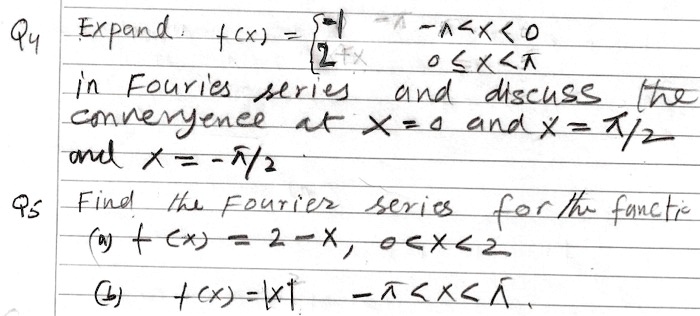 Q4 Expand. f(x) = { -1 -π<x<0
2 0≤x<π
in Fouries series and discuss the
connveryence at x=0 and x = π/2
and x = -π/2
Q5 Find the Fourier series for the functio
(a) f(x) = 2-x, 0<x<2
(b) f(x) = |x| -π<x<π.